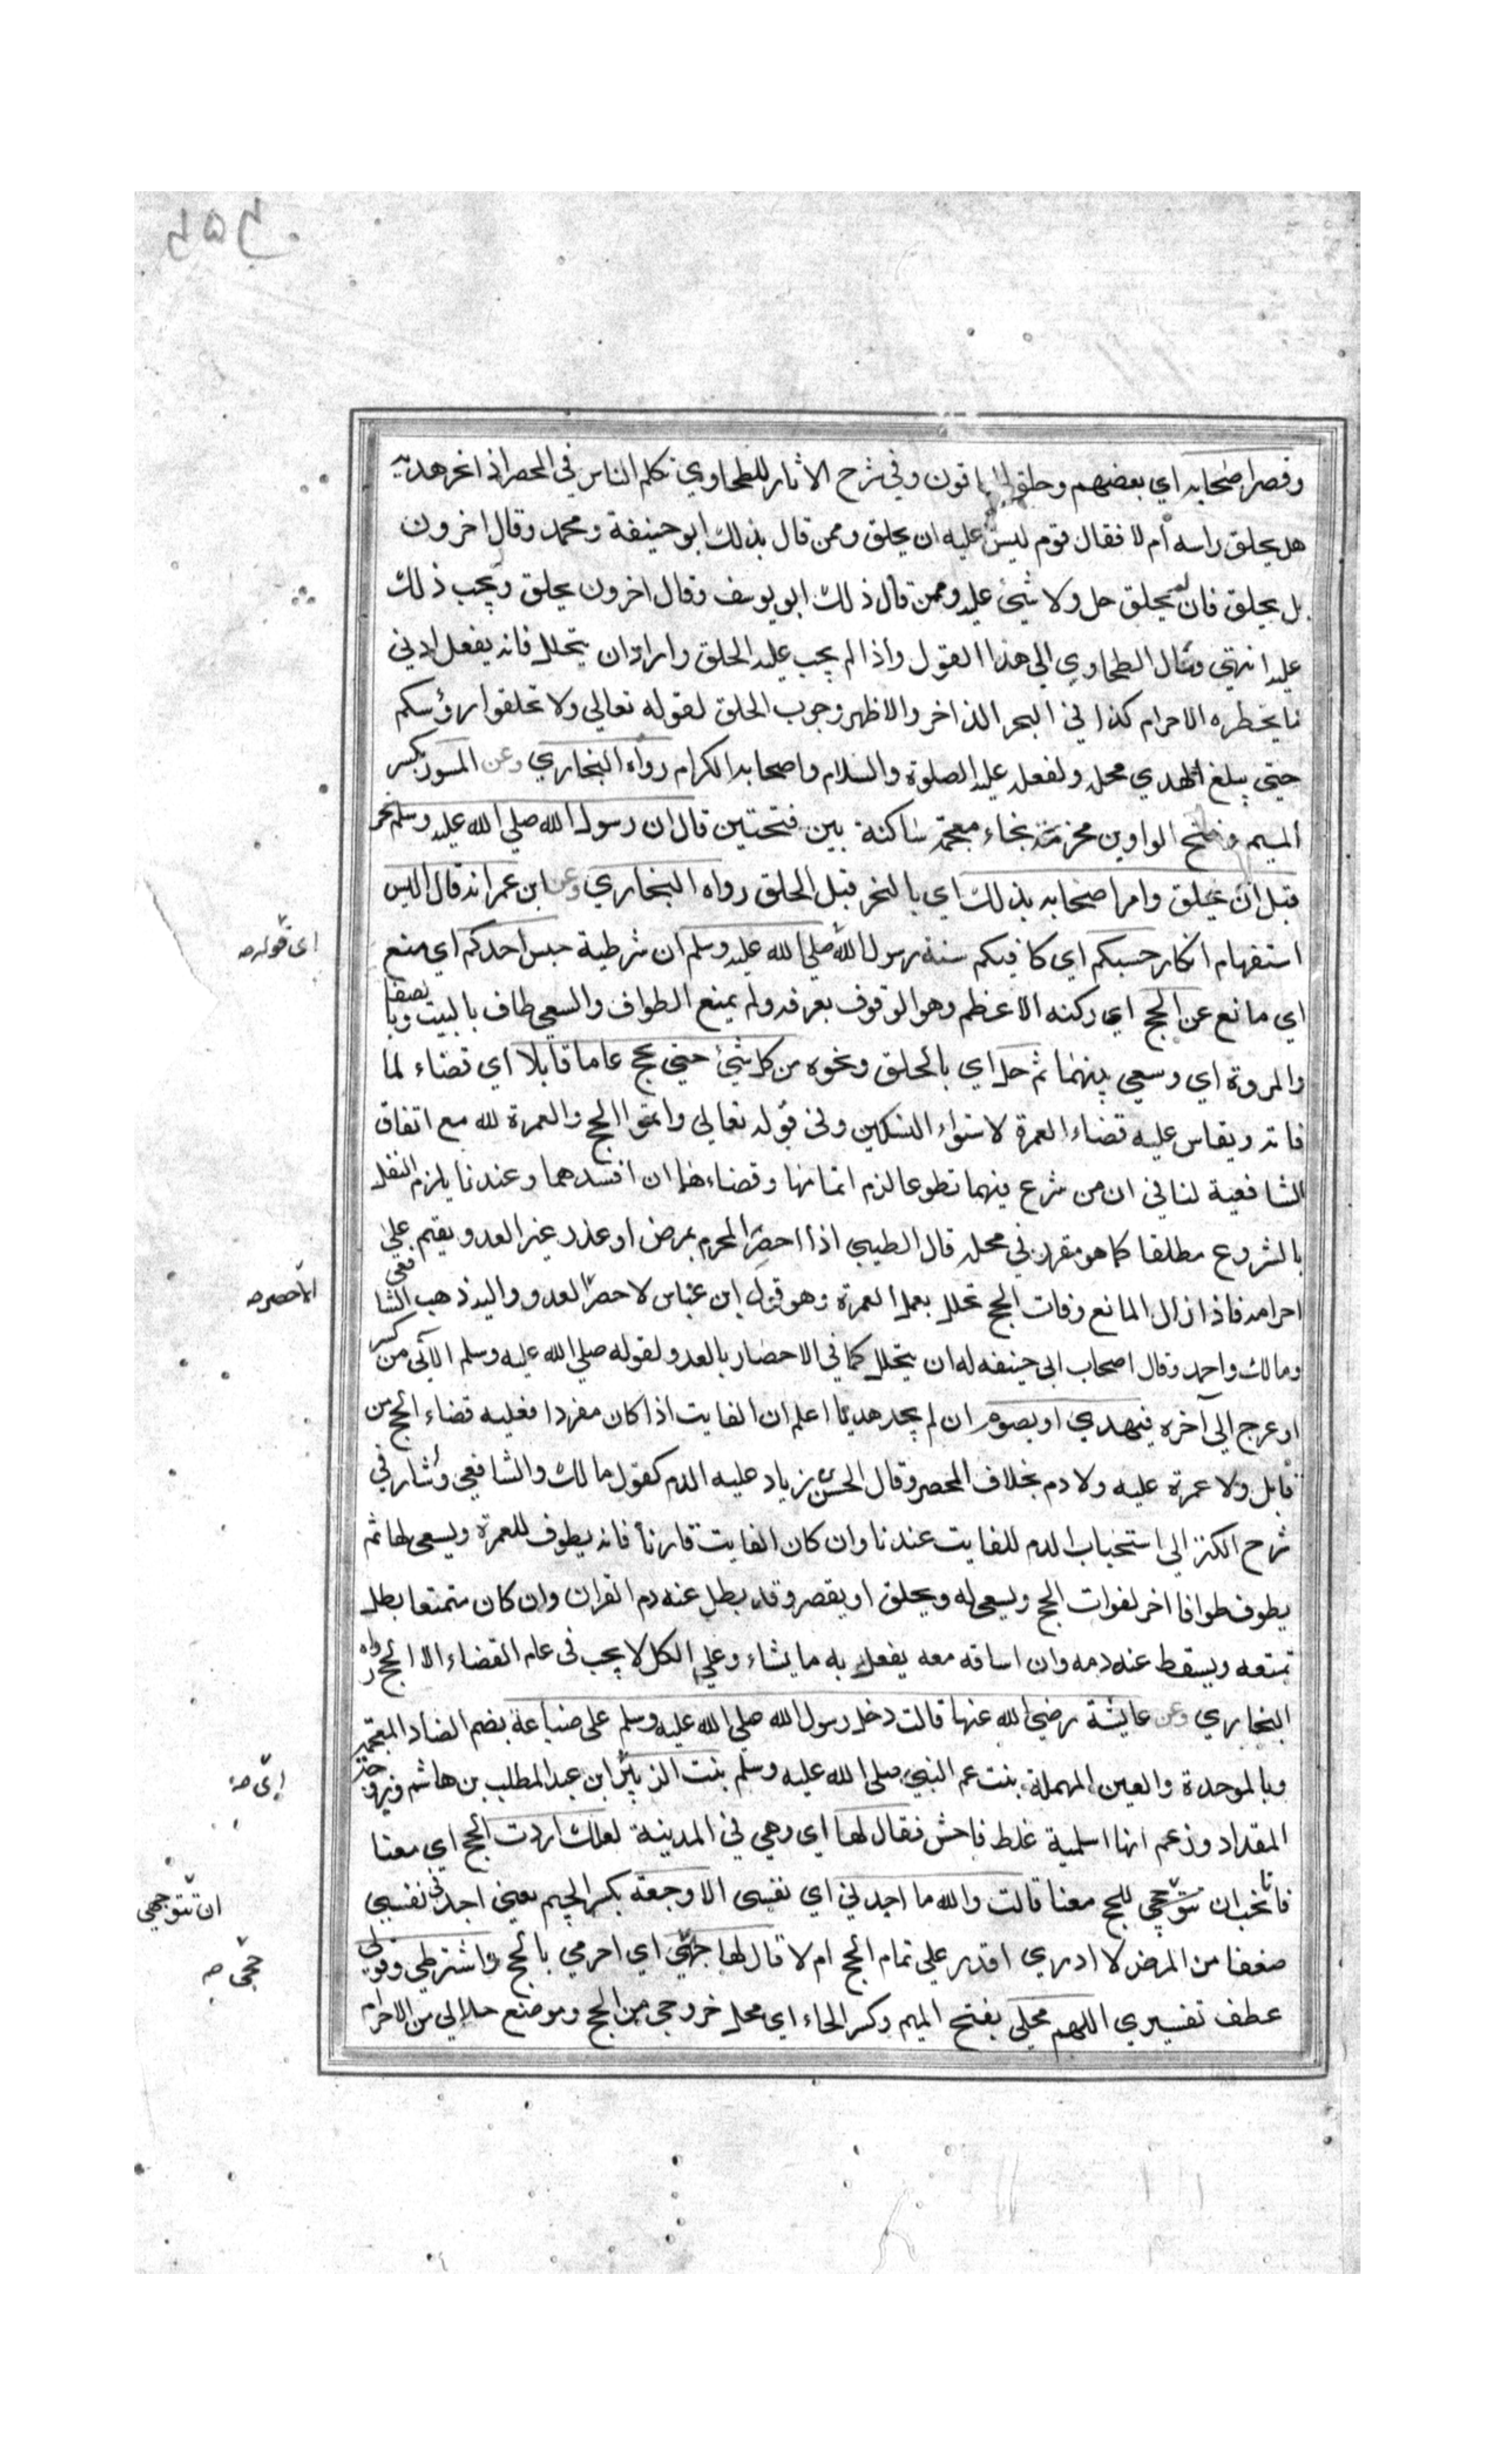 وقصر اصحابه اي بعضهم وحلق الباقون وفي شرح الاثار للطحاوي تكلم الناس في المحصر اذا نحر هديه
هل يحلق راسه أم لا فقال قوم ليس عليه ان يحلق وممن قال بذلك ابو حنيفة ومحمد وقال اخرون
بل يحلق فان لم يحلق حل ولا شيئ عليه وممن قال ذلك ابو يوسف وقال اخرون يحلق ويجب ذلك
عليه انتهي ومال الطحاوي الي هذا القول واذا لم يجب عليه الحلق واراد ان يتحلل فانه يفعل ادني
ما يحظره الاحرام كذا في البحر الذاخر والاظهر وجوب الحلق لقوله تعالي ولا تحلقوا رؤسكم
حتي يبلغ الهدي محله ولفعله عليه الصلوة والسلام واصحابه الكرام رواه البخاري وعن المسور بكسر
الميم وفتح الواو بن مخرمة بخاء معجمة ساكنة بين فتحتين قال ان رسول الله صلي الله عليه وسلم نحر
قبل ان يحلق وامر اصحابه بذلك اي بالنحر قبل الحلق رواه البخاري وعن ابن عمر انه قال اليس
استفهام انكار حسبكم اي كافيكم سنة رسول الله صلي الله عليه وسلم ان شرطية حبس احدكم اي منع
اي قوله صه
اي مانع عن الحج اي ركنه الاعظم وهو الوقوف بعرفه ولم يمنع الطواف والسعي طاف بالبيت وبالصفا
والمروة اي وسعي بينهما ثم حل اي بالحلق ونحوه من كل شيئ حتي يحج عاما قابلا اي قضاء لما
فاته ويقاس عليه قضاء العمرة لاستواء النسكين وفي قوله تعالي واتموا الحج والعمرة لله مع اتفاق
الشافعية لنا في ان من شرع فيهما تطوعا لزم اتمامها وقضاءهما ان افسدهما وعندنا يلزم النفل
بالشروع مطلقا كما هو مقرر في محله قال الطيبي اذا احصر المحرم بمرض او عذر غير العدو يقيم علي
احرامه فاذا زال المانع وفات الحج تحلل بعمل العمرة وهو قول ابن عباس لا حصر العدو واليه ذهب الشافعي
الا حصر صه
ومالك واحمد وقال اصحاب ابي حنيفه له ان يتحلل كما في الاحصار بالعدو لقوله صلي الله عليه وسلم الآتي من كسر
او عرج الي آخره فيهدي او يصوم ان لم يجد هديا اعلم ان الفايت اذا كان مفردا فعليه قضاء الحج من
قابل ولا عمرة عليه ولا دم بخلاف المحصر وقال الحسن بن زياد عليه الدم كقول مالك والشافعي واشار في
شرح الكنز الي استحباب الدم للفايت عندنا وان كان الفايت قارنا فانه يطوف للعمرة ويسعي لها ثم
يطوف طوافا اخر لفوات الحج ويسعي له ويحلق او يقصر وقد بطل عنه دم القران وان كان متمتعا بطل
تمتعه ويسقط عنه دمه وان اساقه معه يفعل به ما يشاء وعلي الكل لا يجب في عام القضاء الا الحج رواه
البخاري وعن عايشة رضي الله عنها قالت دخل رسول الله صلي الله عليه وسلم علي ضباعة بضم الضاد المعجمة
وبالموحدة والعين المهملة بنت عم النبي صلي الله عليه وسلم بنت الزبير ابن عبد المطلب بن هاشم وزوجة
المقداد وزعم انها اسلمية غلط فاحش فقال لها اي وهي في المدينة لعلك اردت الحج اي معنا
فانا نحب ان تتوجهي للحج معنا قالت والله ما اجدني اي نفسي الا وجعة بكسر الجيم يعني اجد في نفسي
ان تتوجهي
ضعفا من المرض لا ادري اقدر علي تمام الحج ام لا قال لها حجي اي احرمي بالحج واشترطي وقولي
حجي صه
عطف تفسيري اللهم محلي بفتح الميم وكسر الحاء اي محل خروجي من الحج وموضع حلالي من الاحرام